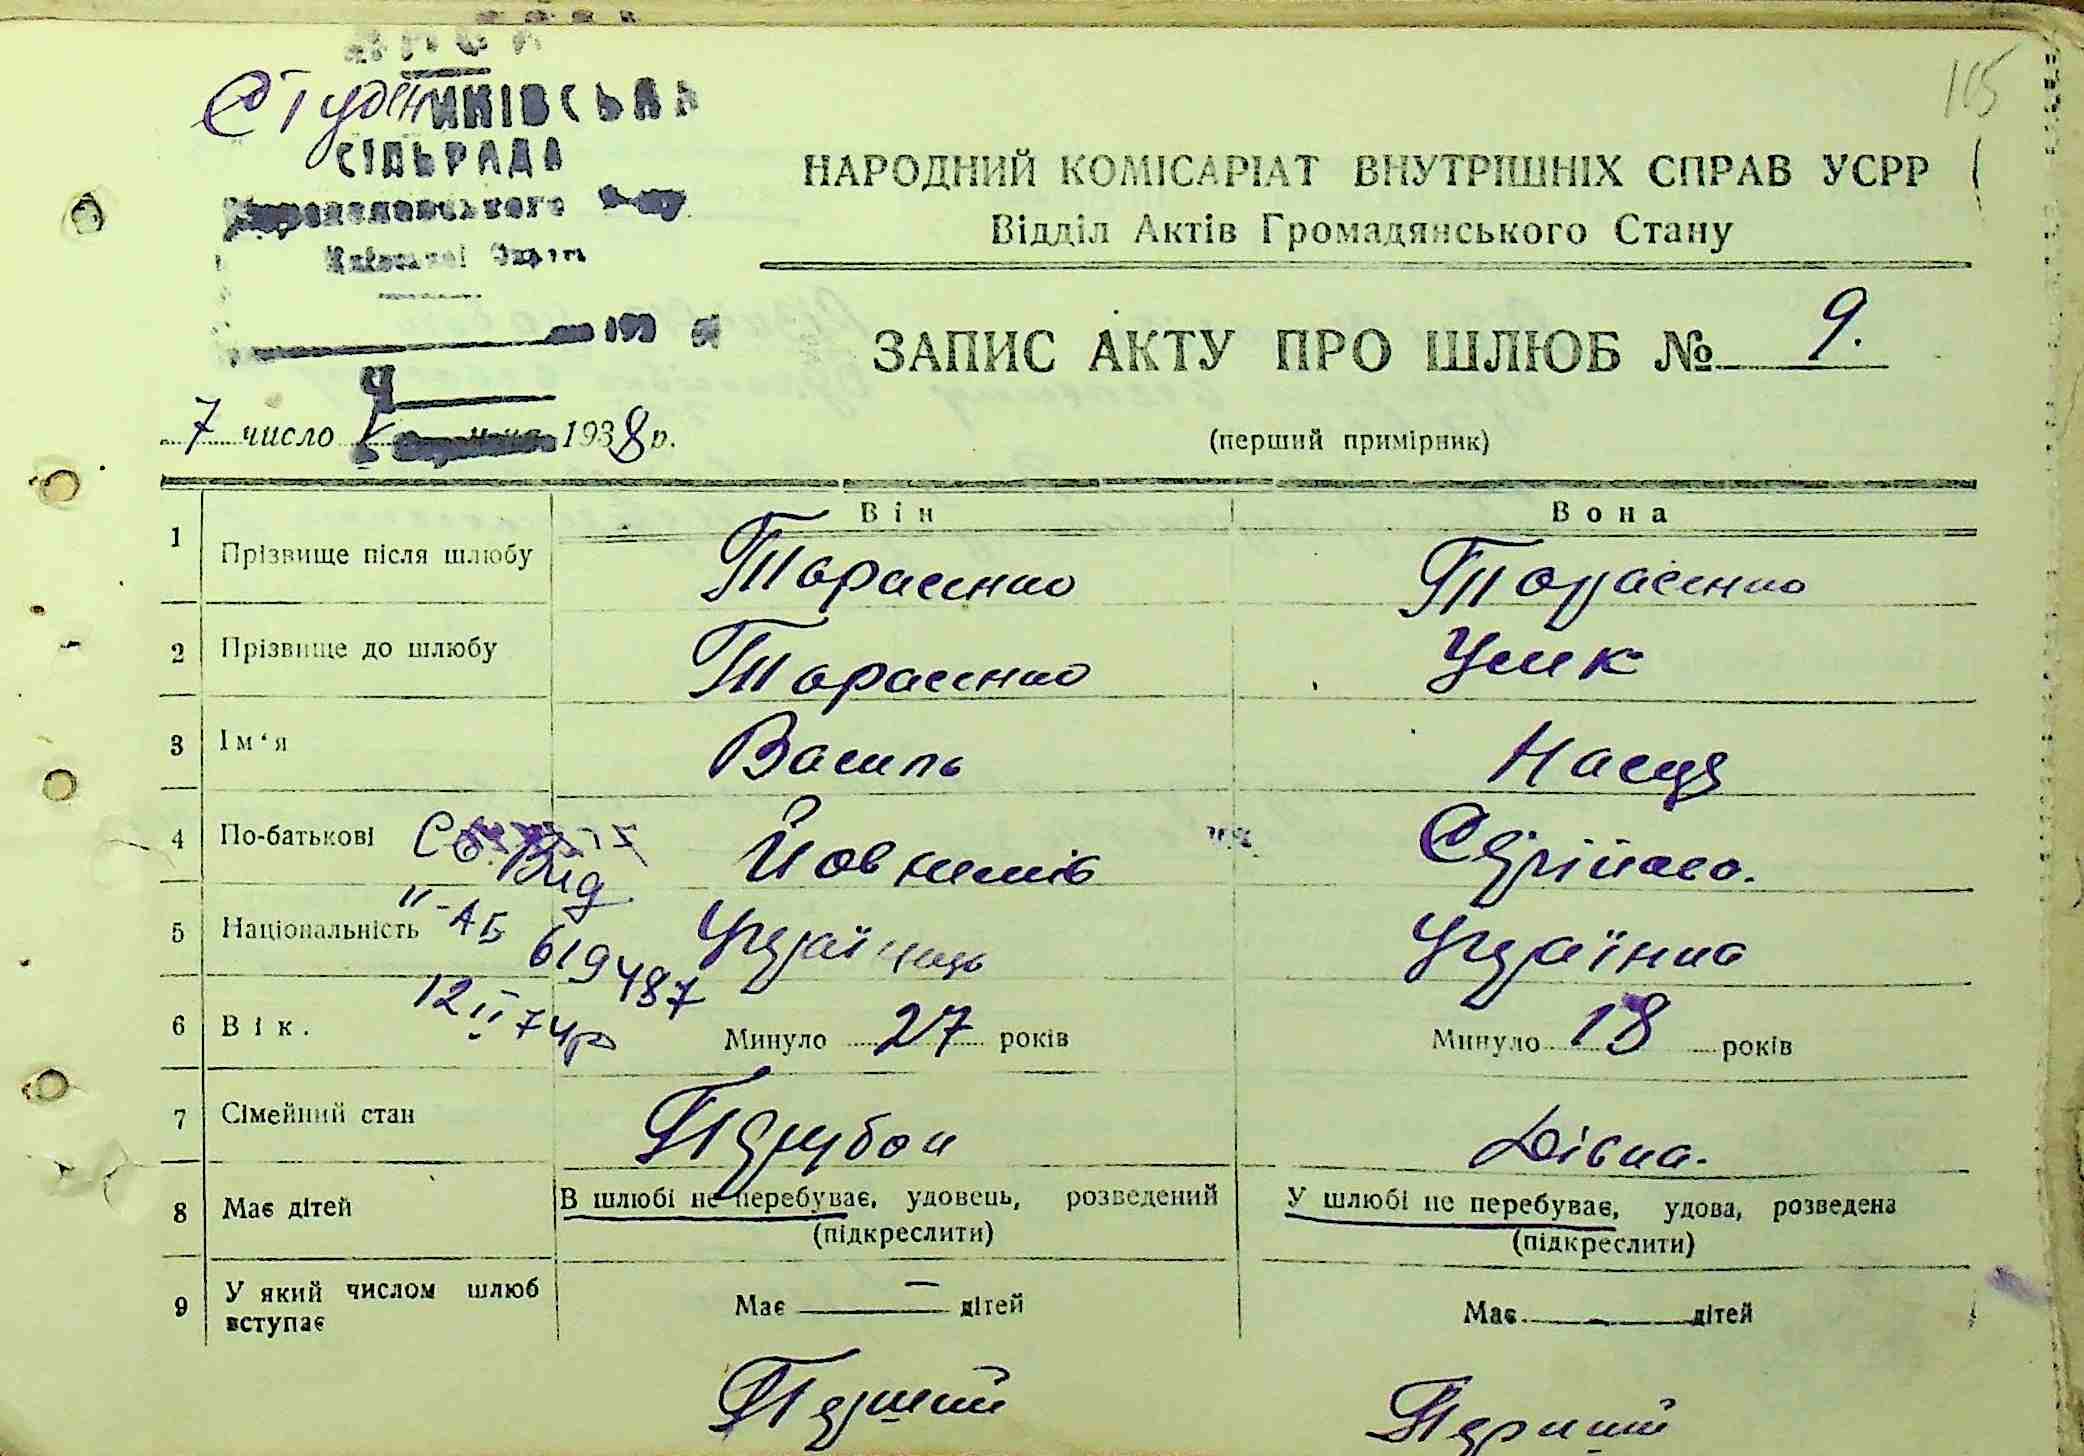 115
Студениківська
СІЛЬРАДА
НАРОДНИЙ КОМІСАРІАТ ВНУТРІШНІХ СПРАВ УСРР
Відділ Актів Громадянського Стану
ЗАПИС АКТУ ПРО ШЛЮБ № 9.
7 число 1938 р.
(перший примірник)
Він Вона
1 Прізвище після шлюбу Тарасенко Тарасенко
2 Прізвище до шлюбу Тарасенко Усик
3 Ім‘я Василь Настя
4 По-батькові Йовхимів
Св. Вид
5 Національність Українець Українка
II-АБ 619487
6 Вік. Минуло 27 років Минуло 18 років
12 II 74р
7 Сімейний стан Парубок Дівка.
8 Має дітей В шлюбі не перебуває, удовець, розведений У шлюбі не перебуває, удова, розведена
(підкреслити) (підкреслити)
9 У який числом шлюб вступає Має — дітей Має - дітей
Перший Перший